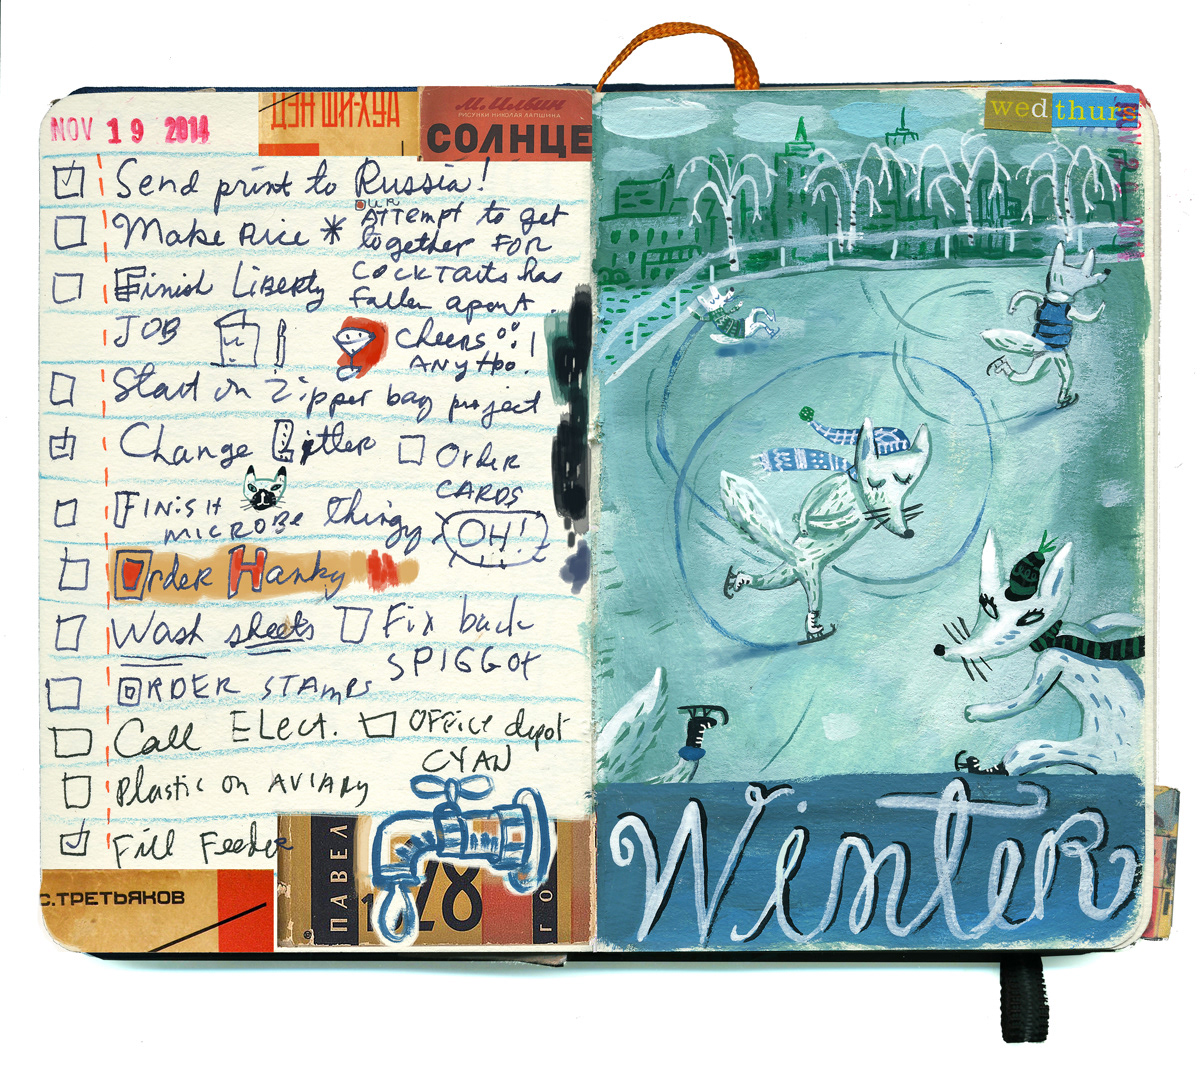 NOV 19 2014
ДЭН ШИ-ХУА
М. Ильин
РИСУНКИ НИКОЛАЯ ЛАПШИНА
СОЛНЦЕ
Send print to Russia!
Make Rice * our Attempt to get
together FOR
Cocktails has
fallen apart
Cheers!
Anyhoo!
Finish Liberty
JOB
Start on Zipper bag project
Change Litter
Order
CARDS
FINISH
MICROBE thingy
OH!
Order Hanky
Wash sheets
Fix back
SPIGGOt
ORDER STAMPS
Call Elect.
OFFice depot
CYAN
Plastic on AVIARy
Fill Feeder
С.ТРЕТЬЯКОВ
ПАВЕЛ
28
ГО
wed thurs
Winter